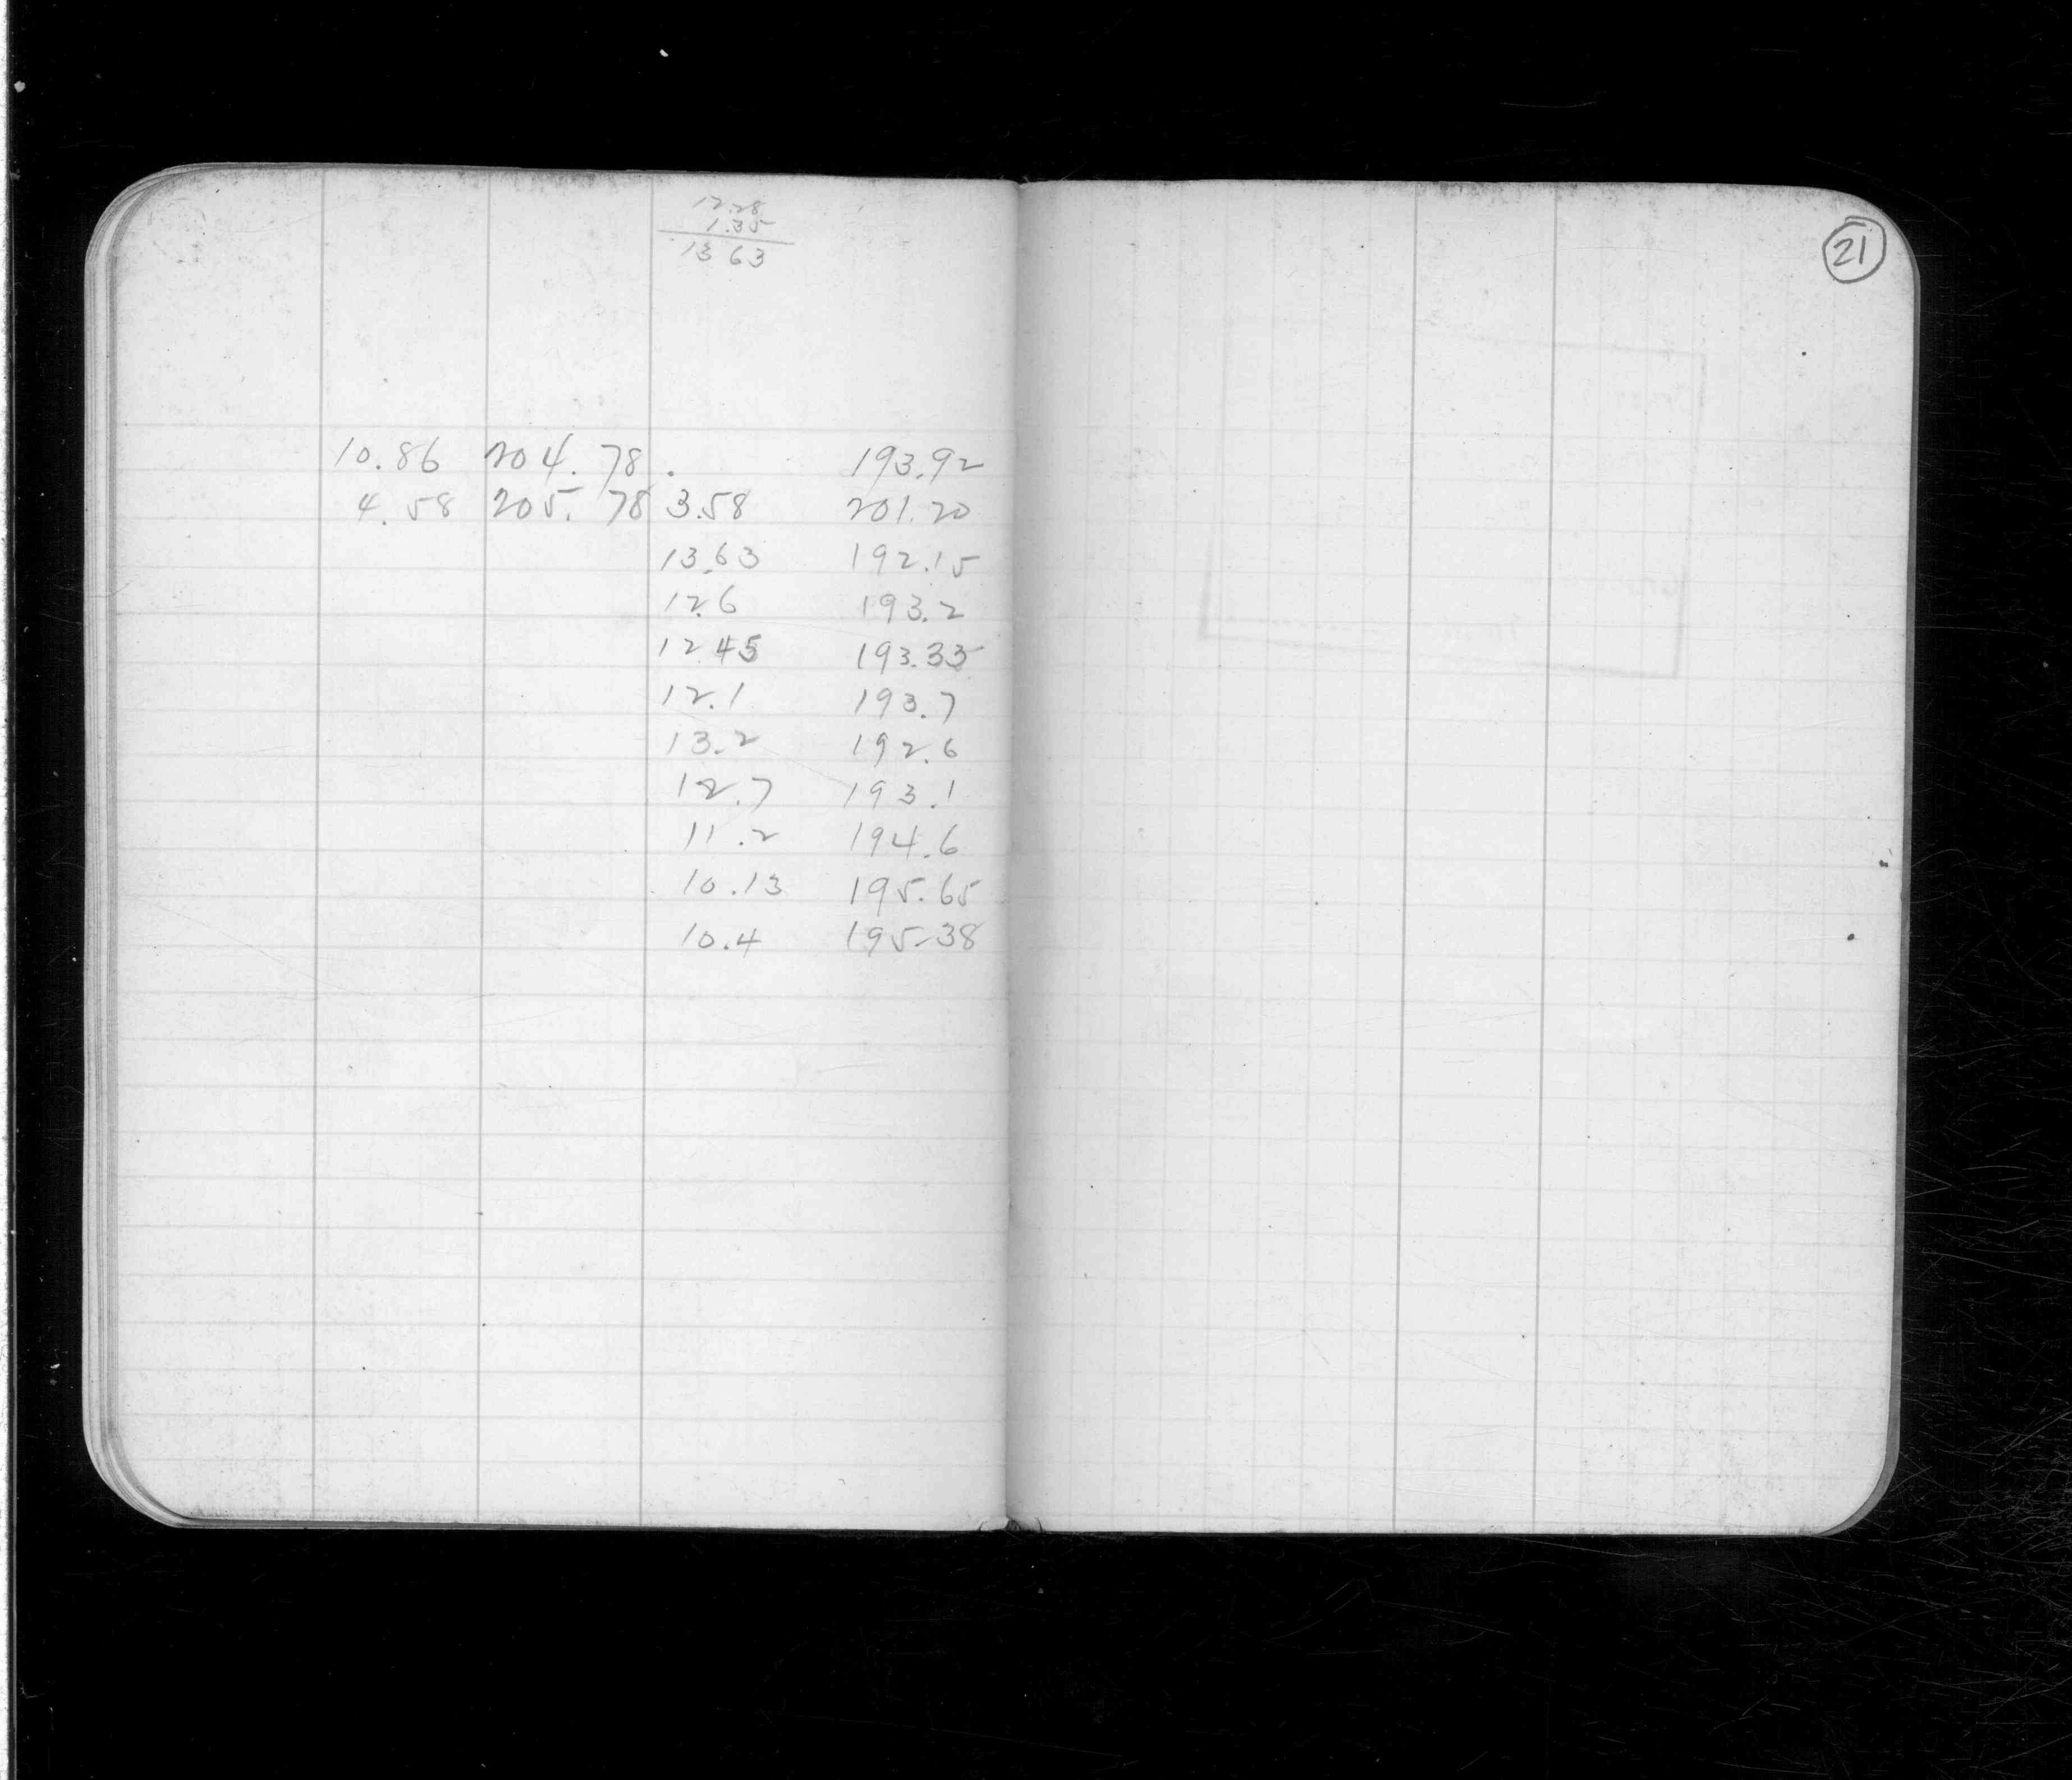 12.28
1.35
13 63
21
10.86 204.78 . 193.92
4.58 205.78 3.58 201.20
13.63 192.15
12.6 193.2
12 45 193.33
12.1 193.7
13.2 192.6
12.7 193.1
11.2 194.6
10.13 195.65
10.4 195-38